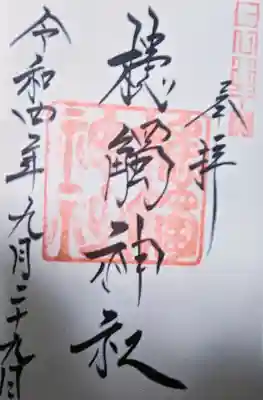 奉拝
槵觸神社
令和四年九月二十九日